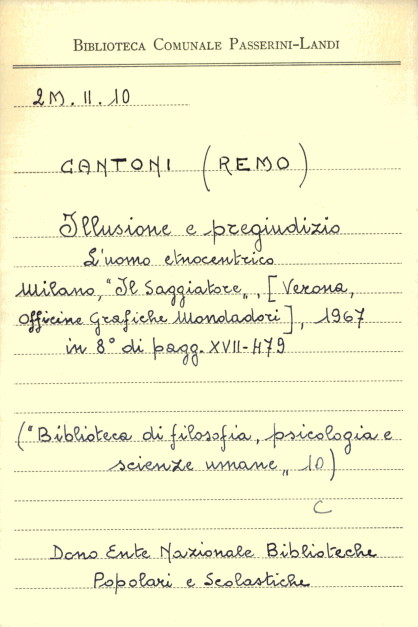 BIBLIOTECA COMUNALE PASSERINI-LANDI
2M. II. 10
CANTONI (REMO)
Illusione e pregiudizio
L'uomo etnocentrico
Milano, "Il Saggiatore„, [Verona,
Officine Grafiche Mondadori], 1967
in 8° di pagg. XVII-479
("Biblioteca di filosofia, psicologia e
scienze umane„ 10)
C
Dono Ente Nazionale Biblioteche
Popolari e Scolastiche